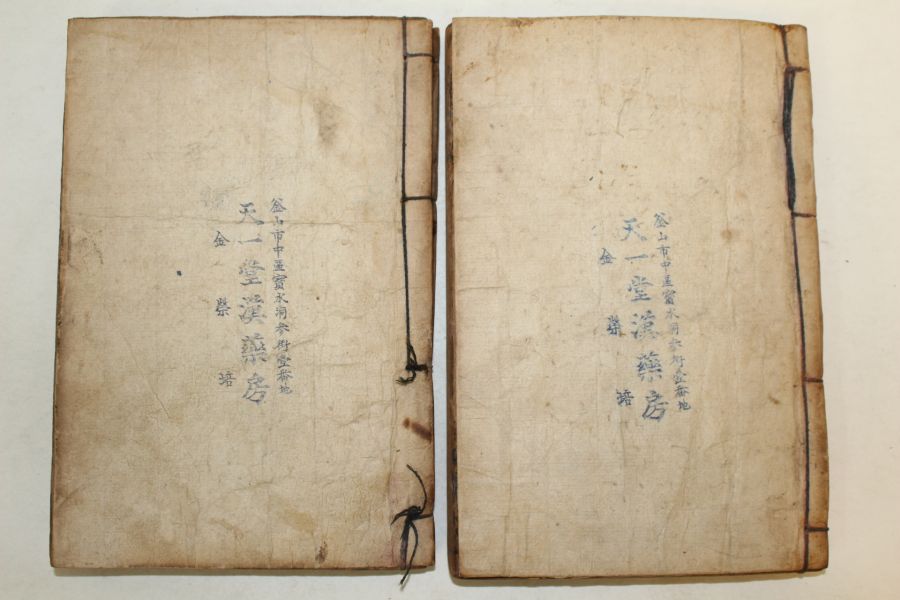 釜山市中區寶水洞參街壹番地
天一堂漢藥房
金榮培
釜山市中區寶水洞參街壹番地
天一堂漢藥房
金榮培